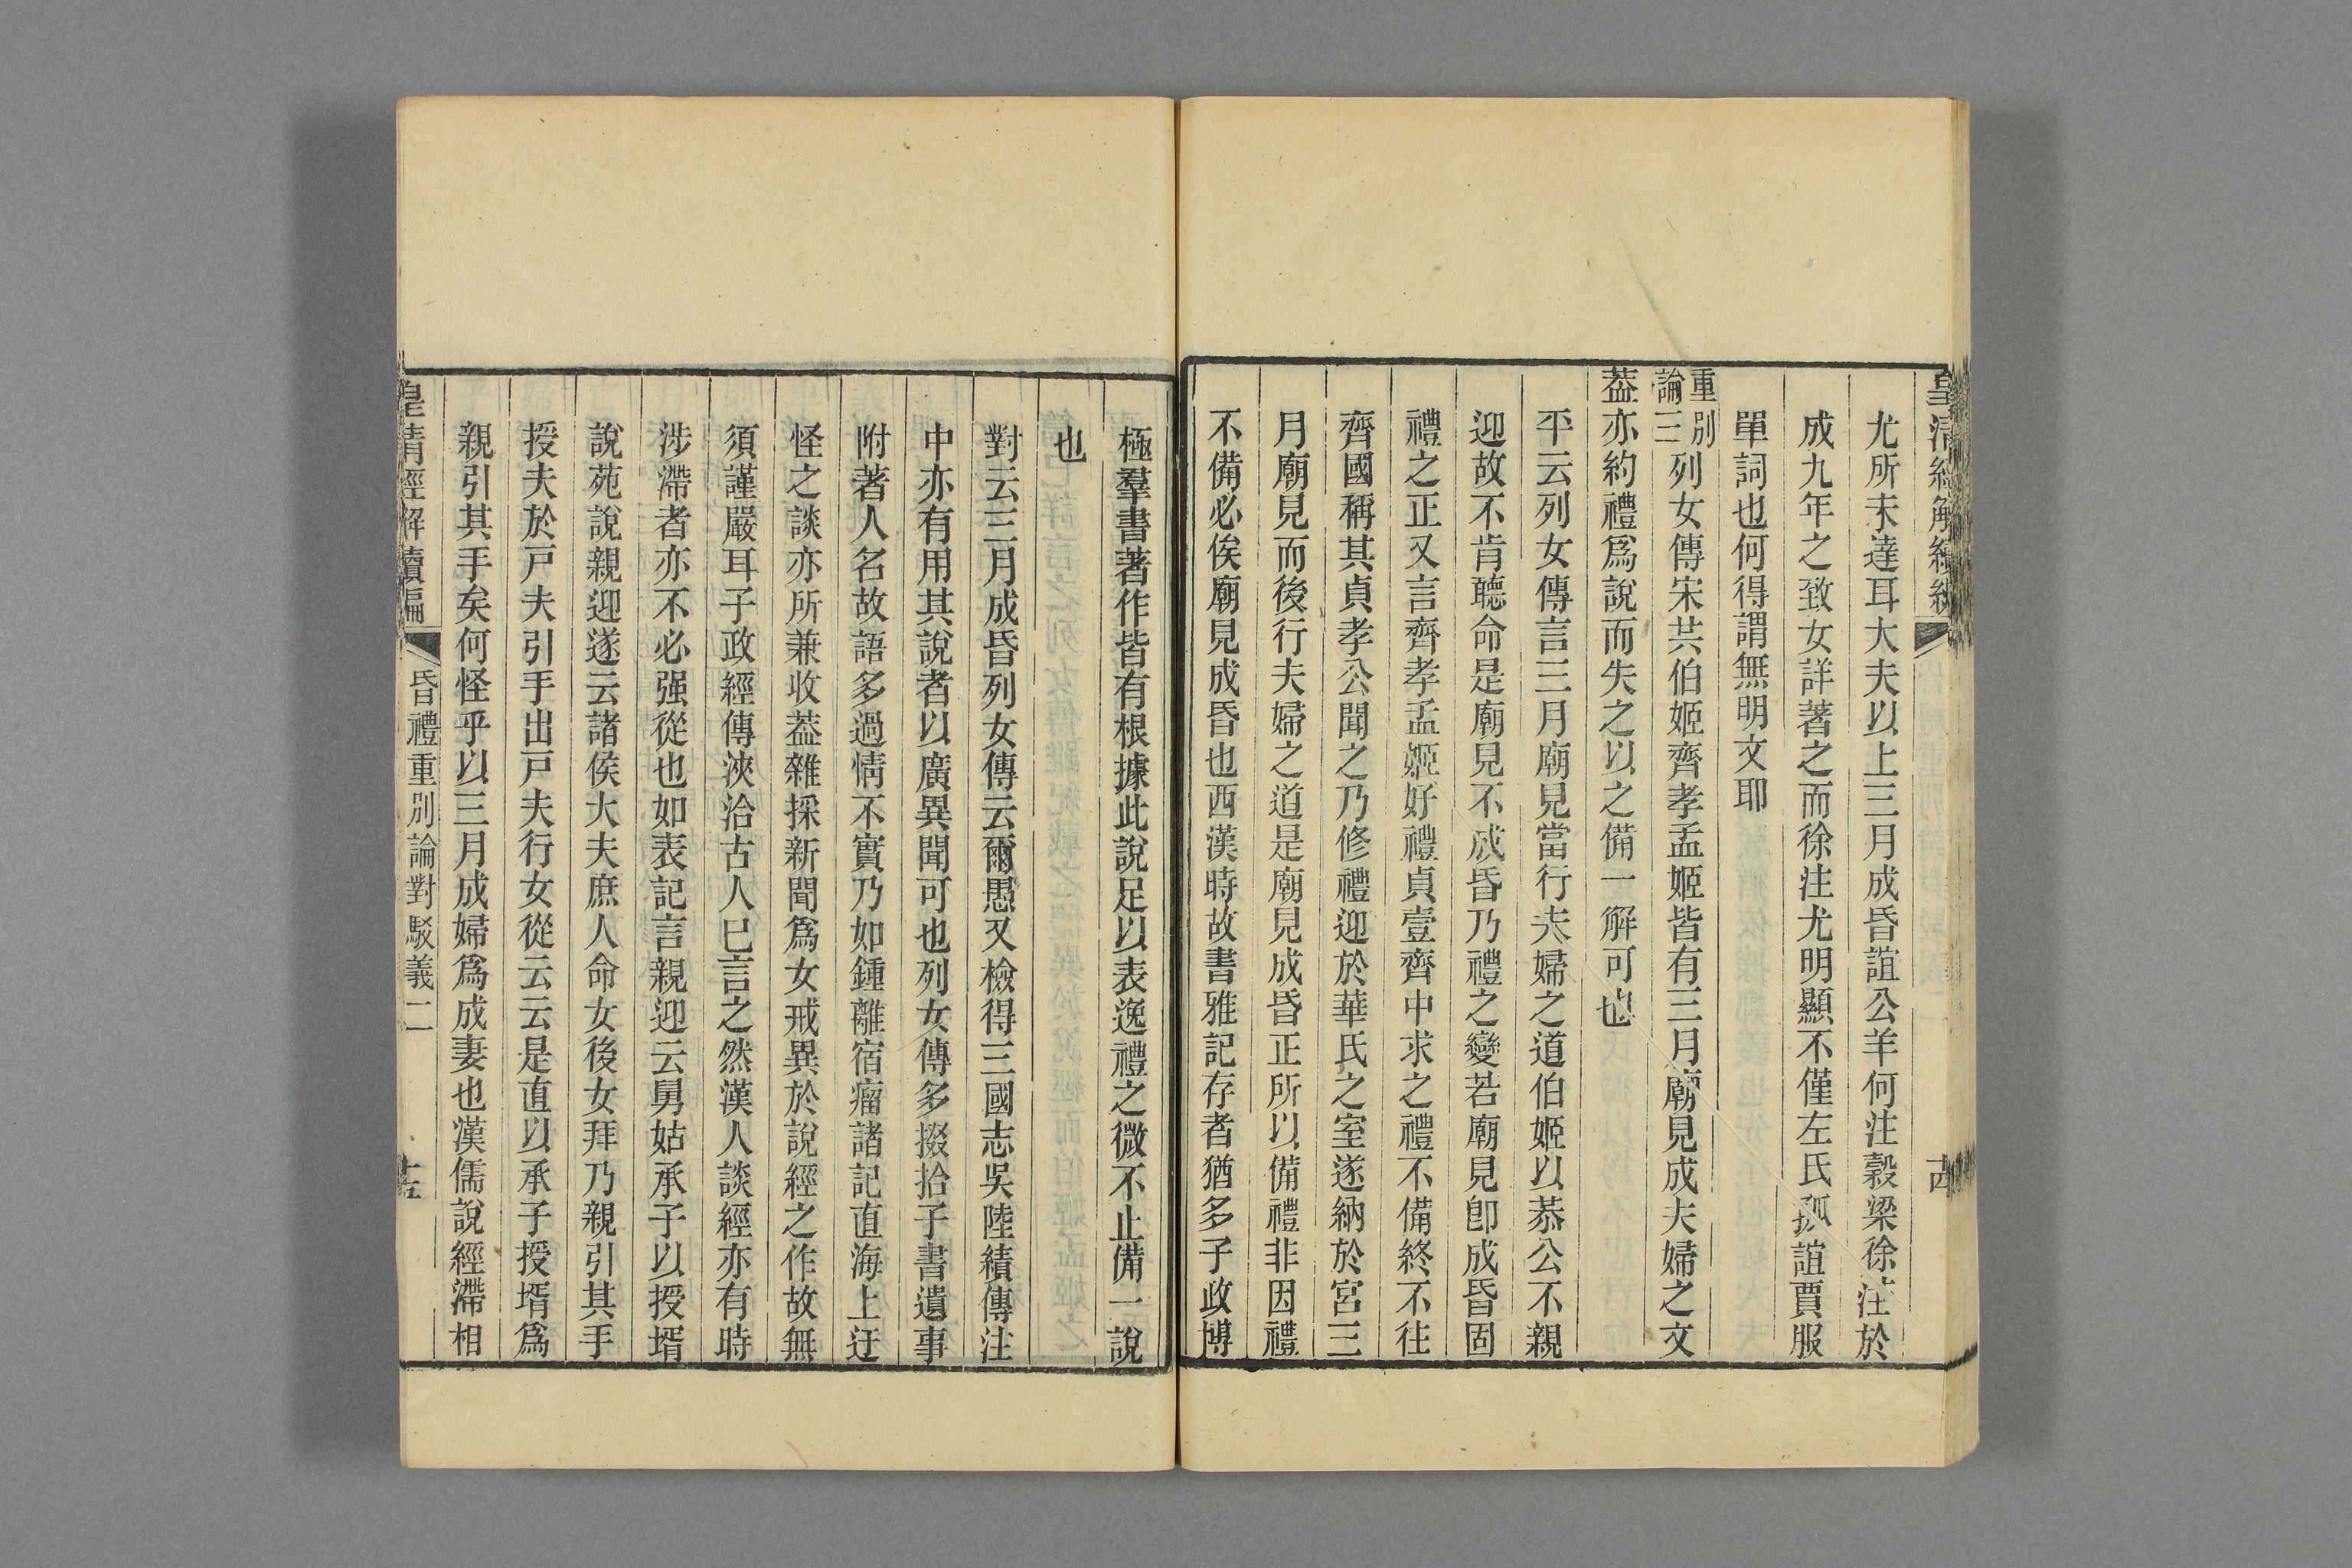 皇清經解續編
古
尤所未達耳大夫以上三月成昏誼公羊何注穀梁徐注於
成九年之致女詳著之而徐注尤明顯不僅左氏孤誼賈服
單詞也何得謂無明文耶
重別論三列女傳宋共伯姬齊孝孟姬皆有三月廟見成夫婦之文
葢亦約禮爲說而失之以之備一解可也
平云列女傳言三月廟見當行夫婦之道伯姬以恭公不親
迎故不肯聽命是廟見不成昏乃禮之變若廟見卽成昏固
禮之正又言齊孝孟姬好禮貞壹齊中求之禮不備終不往
齊國稱其貞孝公聞之乃修禮迎於華氏之室遂納於宮三
月廟見而後行夫婦之道是廟見成昏正所以備禮非因禮
不備必俟廟見成昏也西漢時故書雅記存者猶多子政博
極羣書著作皆有根據此說足以表逸禮之微不止備一說
也
對云三月成昏列女傳云爾愚又檢得三國志吳陸績傳注
中亦有用其說者以廣異聞可也列女傳多掇拾子書遺事
附著人名故語多過情不實乃如鍾離宿瘤諸記直海上迂
怪之談亦所兼收葢雜採新聞爲女戒異於說經之作故無
須謹嚴耳子政經傳浹洽古人巳言之然漢人談經亦有時
涉滯者亦不必强從也如表記言親迎云舅姑承子以授壻
說苑說親迎遂云諸侯大夫庶人命女後女拜乃親引其手
授夫於戸夫引手出戸夫行女從云云是直以承子授壻爲
親引其手矣何怪乎以三月成婦爲成妻也漢儒說經滯相
皇清經解續編
昏禮重別論對駁義二
十五